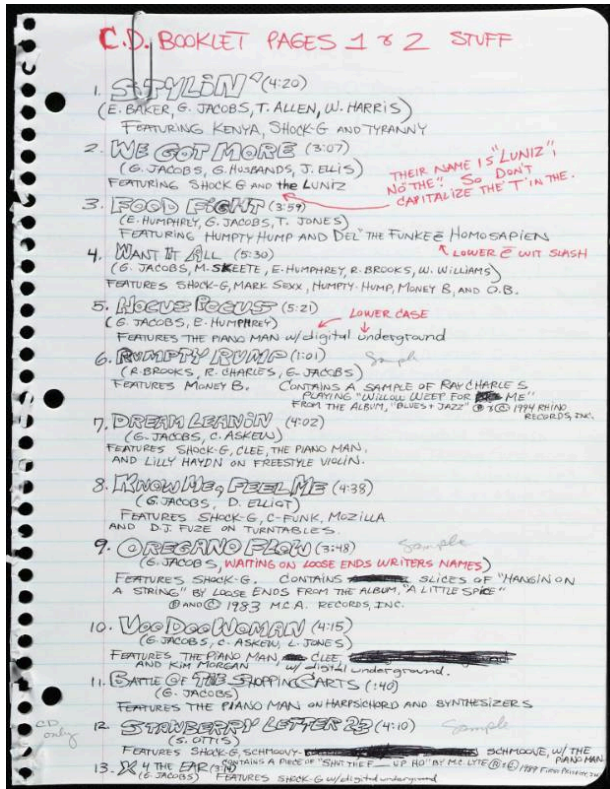 C.D. BOOKLET PAGES 1 & 2 STUFF
1. STYLIN' (4:20)
(E. BAKER, G. JACOBS, T. ALLEN, W. HARRIS)
FEATURING KENYA, SHOCK-G AND TYRANNY
2. WE GOT MORE (3:07)
(G. JACOBS, G. HUSBANDS, J. ELLIS)
FEATURING SHOCK G AND the LUNIZ
THEIR NAME IS "LUNIZ";
NO "THE". SO DON'T
CAPITALIZE THE 'T' IN THE.
3. FOOD FIGHT (3:59)
(E. HUMPHREY, G. JACOBS, T. JONES)
FEATURING HUMPTY HUMP AND DEL "THE FUNKEē HOMOSAPIEN
LOWER ē WIT SLASH
4. WANT IT ALL (5:30)
(G. JACOBS, M. SKEETE, E. HUMPHREY, R. BROOKS, W. WILLIAMS)
FEATURES SHOCK-G, MARK SEXX, HUMPTY-HUMP, MONEY B, AND O.B.
5. HOCUS POCUS (5:21)
(G. JACOBS, E. HUMPHREY)
LOWER CASE
FEATURES THE PIANO MAN w/ digital underground
6. RUMPTY RUMP (1:01)
Sample
(R. BROOKS, R. CHARLES, G. JACOBS)
FEATURES MONEY B. CONTAINS A SAMPLE OF RAY CHARLES
PLAYING "WILLOW WEEP FOR ME"
FROM THE ALBUM, "BLUES + JAZZ" ℗ & © 1994 RHINO
RECORDS, INC.
7. DREAM LEANIN (4:02)
(G. JACOBS, C. ASKEW)
FEATURES SHOCK-G, CLEE, THE PIANO MAN,
AND LILLY HAYDN ON FREESTYLE VIOLIN.
8. KNOW ME, FEEL ME (4:38)
(G. JACOBS, D. ELLIOT)
FEATURES SHOCK-G, C-FUNK, MOZILLA
AND D.J. FUZE ON TURNTABLES.
9. OREGANO FLOW (3:48)
Sample
(G. JACOBS, WAITING ON LOOSE ENDS WRITERS NAMES)
FEATURES SHOCK-G. CONTAINS SLICES OF "HANGIN ON
A STRING" BY LOOSE ENDS FROM THE ALBUM, "A LITTLE SPICE"
℗ AND © 1983 M.C.A. RECORDS, INC.
10. VOO DOO WOMAN (4:15)
(G. JACOBS, C. ASKEW, L. JONES)
FEATURES THE PIANO MAN, CLEE
AND KIM MORGAN w/ digital underground.
11. BATTLE OF THE SHOPPING CARTS (:40)
(G. JACOBS)
FEATURES THE PIANO MAN ON HARPSICHORD AND SYNTHESIZERS
CD only
12. STAWBERRY LETTER 23 (4:10)
Sample
(S. OTTIS)
FEATURES SHOCK-G, SCHMOOVY- SCHMOOVE, W/ THE
PIANO MAN
CONTAINS A PIECE OF "SHUT THE F__ UP HO" BY M.C. LYTE ℗ & © 1989 FIRST PRIORITY
13. X 4 THE EAR
(G. JACOBS) FEATURES SHOCK-G w/ digital underground